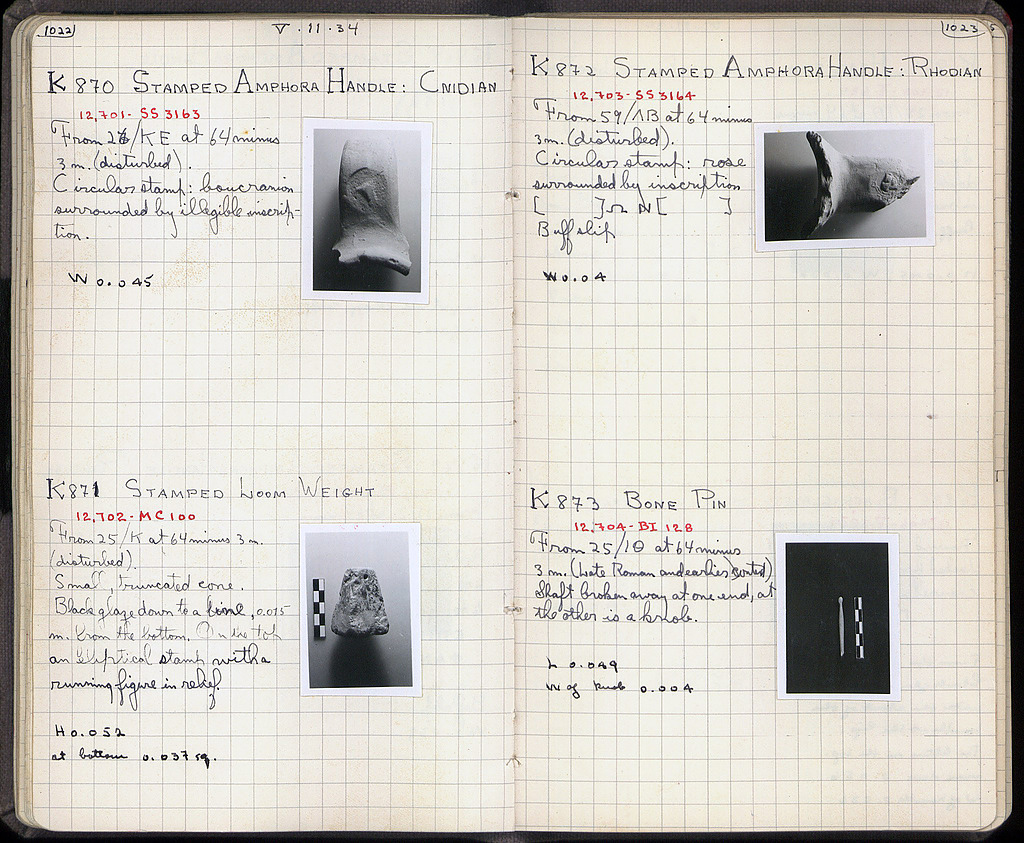 1022
V · 11 · 34
K 870 STAMPED AMPHORA HANDLE: CNIDIAN
12,701 - SS 3163
From 26/KE at 64 minus
3 m. (disturbed).
Circular stamp: boucranion
surrounded by illegible inscrip-
tion.
W 0.045
K 871 STAMPED LOOM WEIGHT
12,702 - MC 100
From 25/K at 64 minus 3 m.
(disturbed).
Small, truncated cone.
Black glaze down to a line, 0.015
m. from the bottom. On the top
an elliptical stamp with a
running figure in relief.
H 0.052
at bottom 0.037 sq.
1023
K 872 STAMPED AMPHORA HANDLE: RHODIAN
12,703 - SS 3164
From 59/ΛB at 64 minus
3 m. (disturbed).
Circular stamp: rose
surrounded by inscription
[ ]Ω N [ ]
Buff slip
W 0.04
K 873 BONE PIN
12,704 - BI 128
From 25/IΘ at 64 minus
3 m. (Late Roman and earlier)
Shaft broken away at one end, at
the other is a knob.
L 0.049
W of knob 0.004